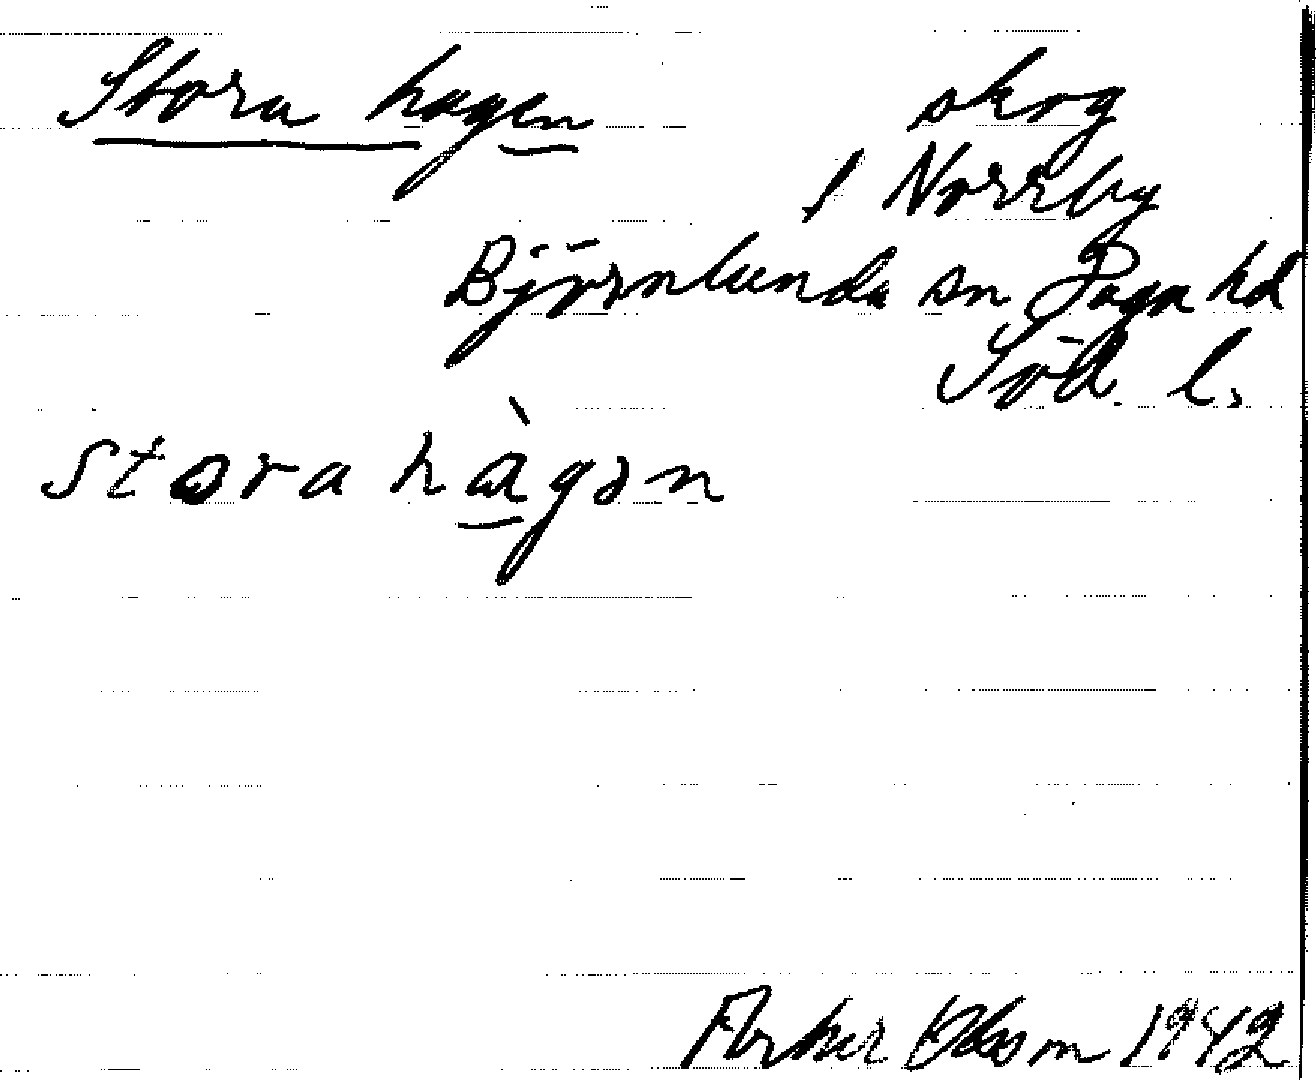 Stora hagen skog
1 Norrby
Björnlunda sn Daga hd
Söd. l.
Stora hàgən
Olsson 1942